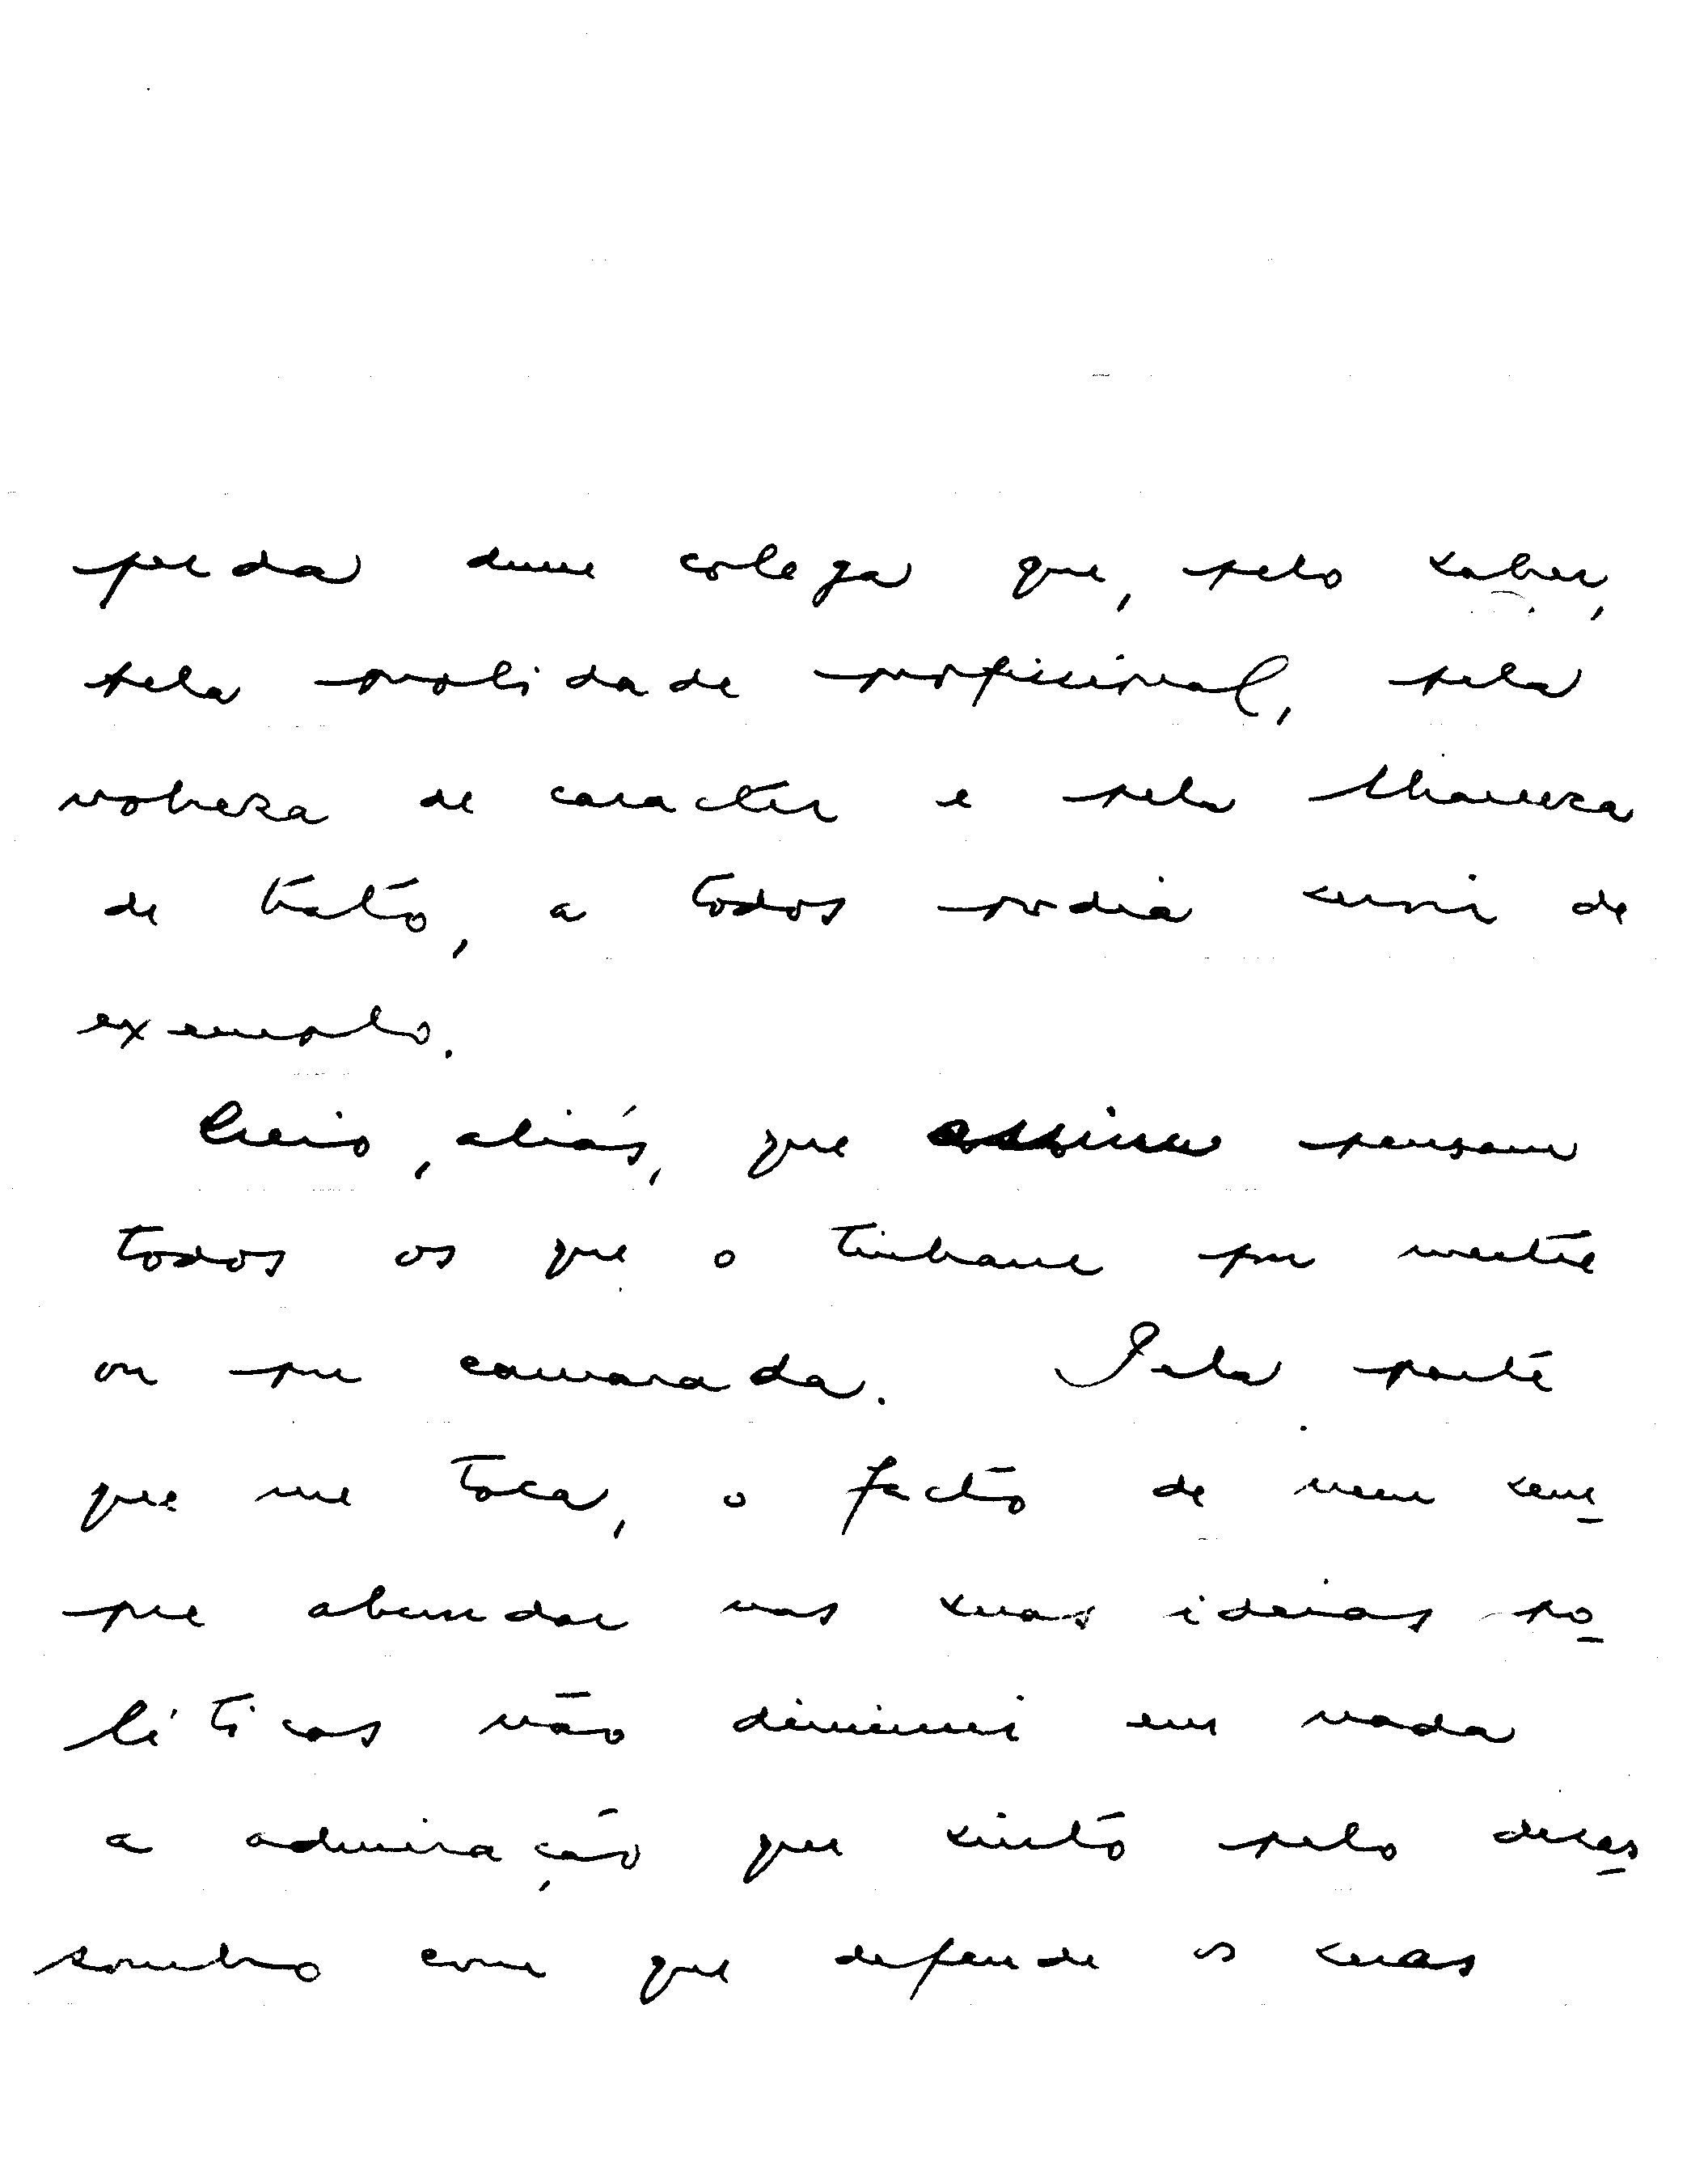 perda dum colega que, pelo saber,
pela probidade profissional, pela
nobreza de caracter e pela lhaneza
de trato, a todos podia servir de
exemplo.
Creio, aliás, que assim pensam
todos os que o tinham por mestre
ou por camarada. Pela parte
que me toca, o facto de nem sem-
pre abundar nas suas ideias po-
líticas não diminui em nada
a admiração que sinto pelo desas-
sombro com que defende as suas